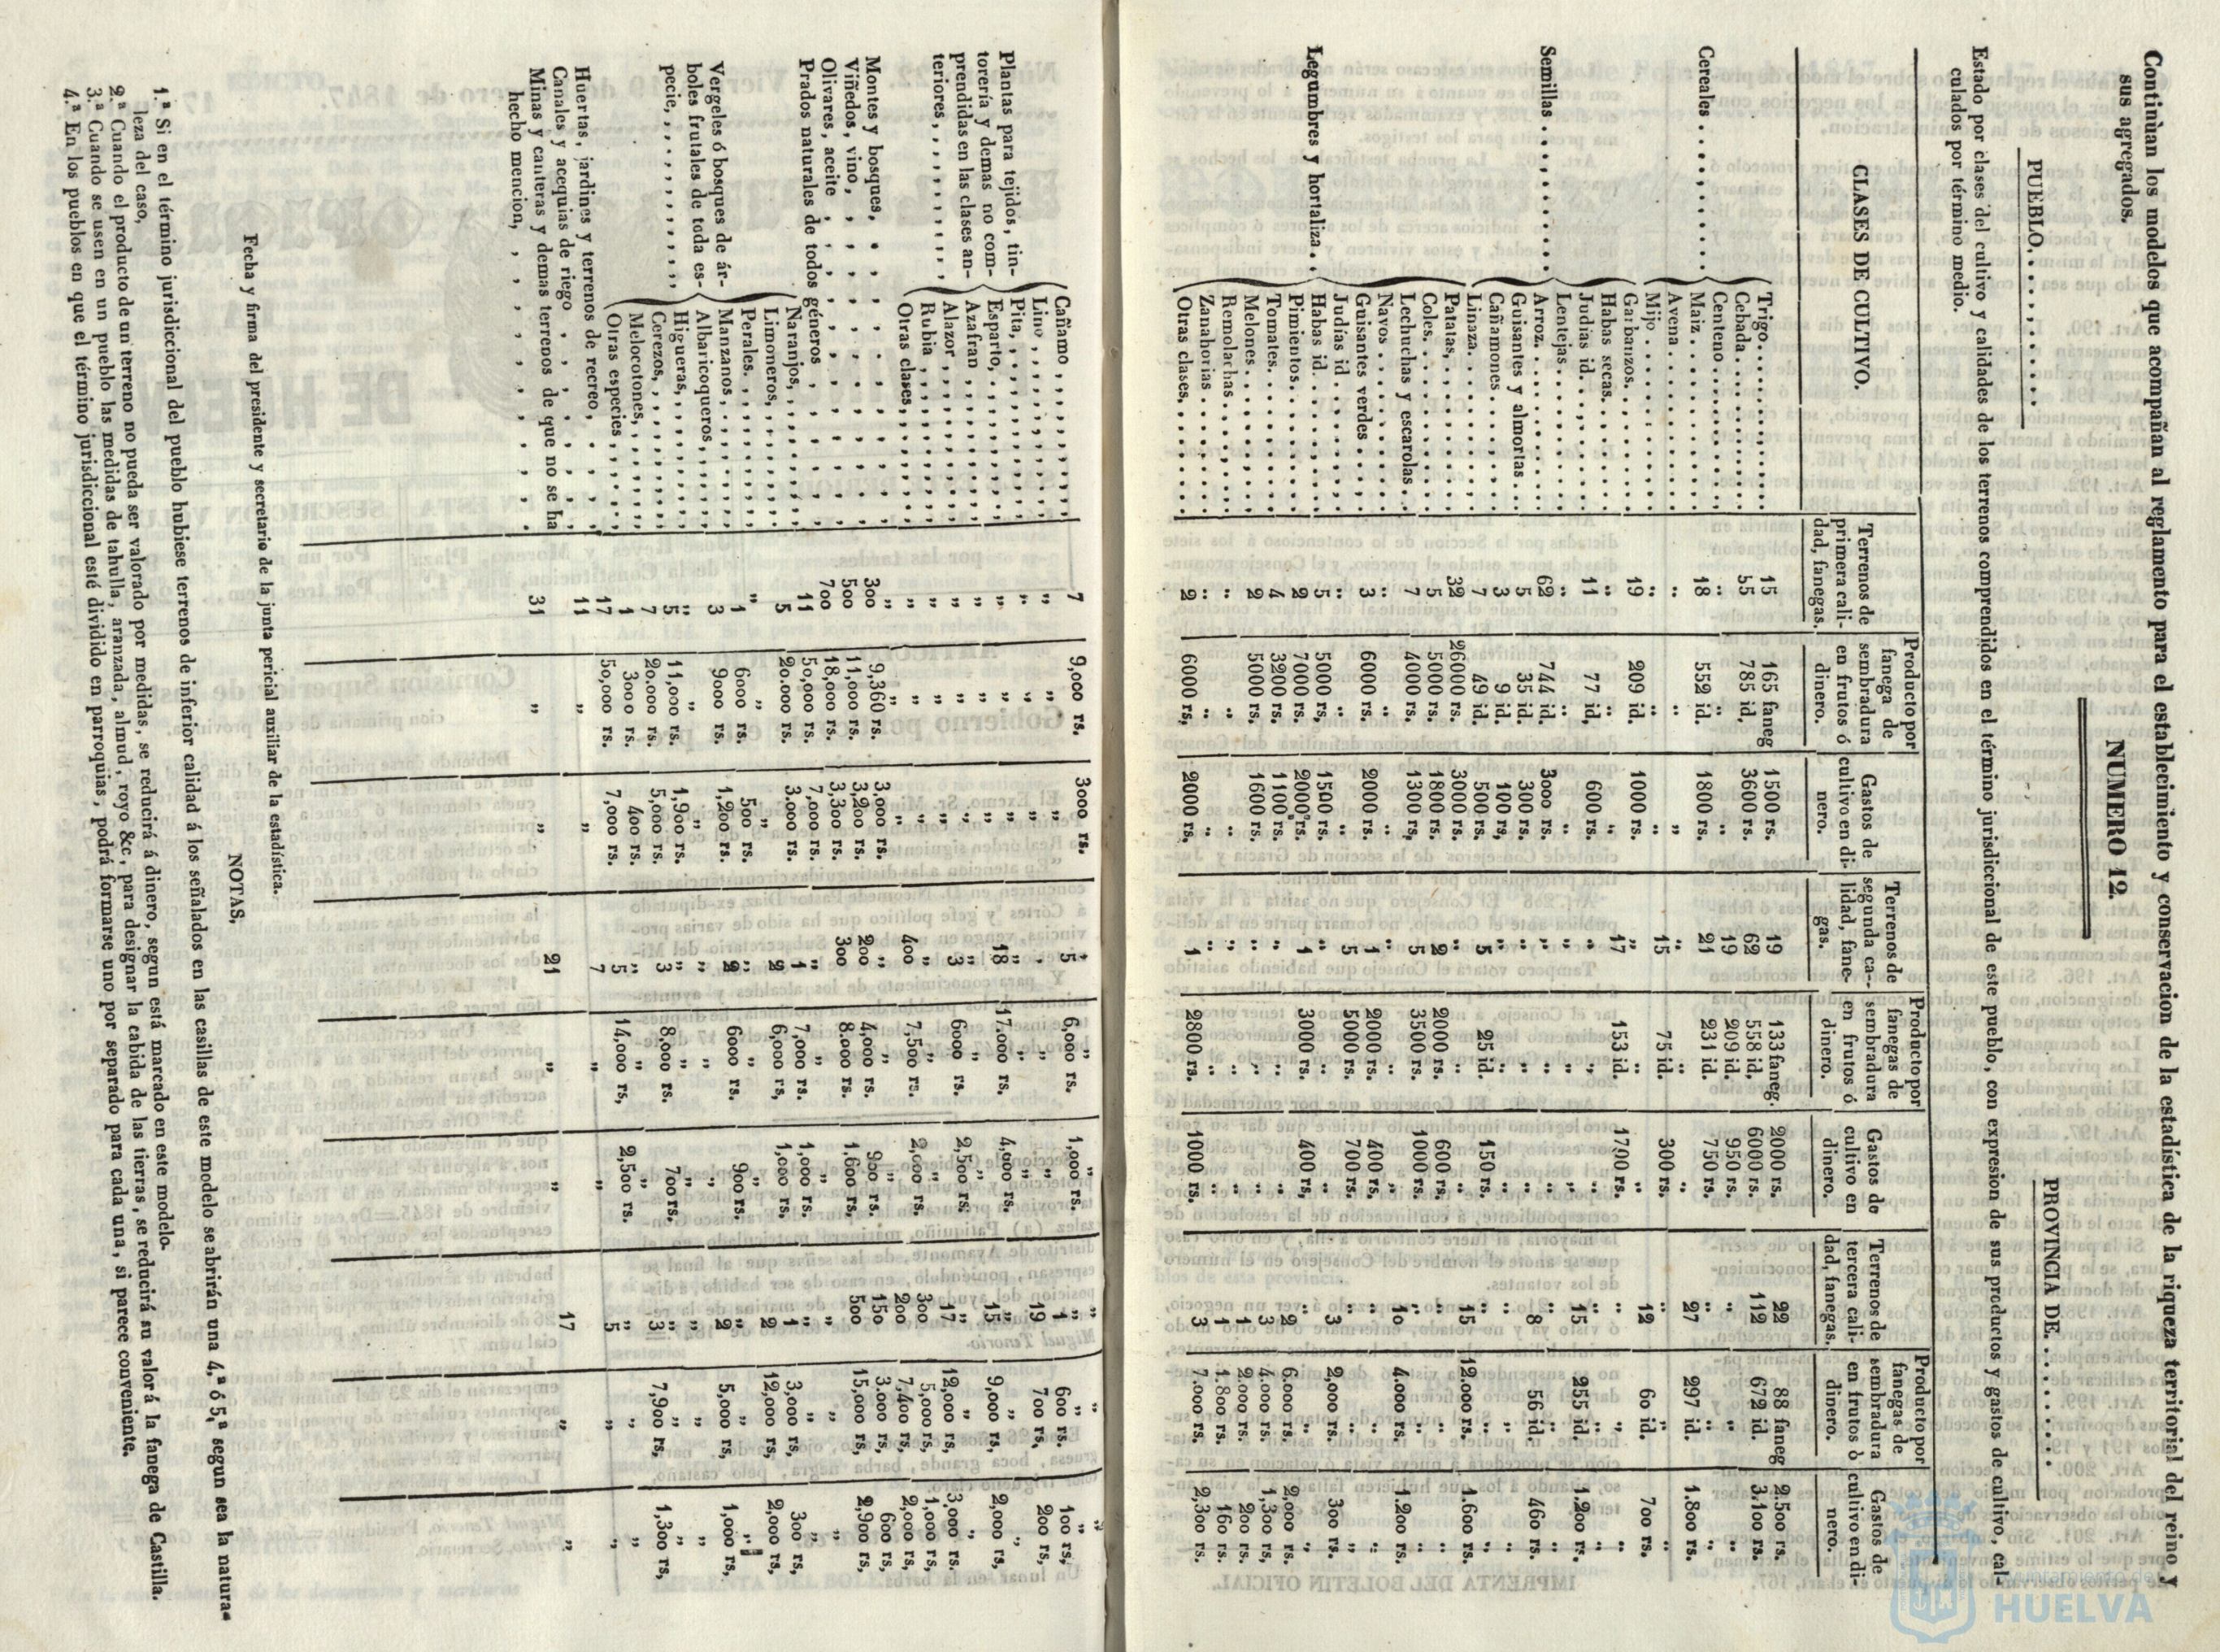 Continùan los modelos que acompañan al reglamento para el establecimiento y conservacion de la estadística de la riqueza territorial del reino y
sus agregados.
NUMERO 12.
PUEBLO. . . . , . . . . . PROVINCIA DE. . . . . . . .
Estado por clases del cultivo y calidades de los terrenos comprendidos en el término jurisdiccional de este pueblo, con expresion de sus productos y gastos de cultivo, cal-
culados por término medio.
CLASES DE CULTIVO.
Terrenos de primera cali-dad, fanegas.
Producto por fanega de sembradura en frutos ó dinero.
Gastos de cultivo en di-nero.
Terrenos de segunda ca--lidad, fane-gas.
Producto por fanegas de sembradura en frutos ó dinero.
Gastos de cultivo en dinero.
Terrenos de tercera cali-dad, fanegas.
Producto por fanegas de sembradura en frutos ó dinero.
Gastos de cultivo en di-nero.
Cereales . . . . . . . . .
Trigo. . . 15 165 faneg 1500 rs. 19 133 faneg. 2000 rs. 22 88 faneg 2.500 rs.
Cebada. . . 55 785 id, 3600 rs. 62 558 id, 6000 rs. 112 672 id. 3.100 rs.
Centeno . . . ,, ,, ,, 19 209 id. 950 rs. ,, ,, ,,
Maiz. . . 18 552 id. 1800 rs. 21 231 id. 750 rs. 27 297 id. 1.800 rs.
Avena . . . ,, ,, ,, ,, ,, ,, ,, ,, ,,
Mijo . . . ,, ,, ,, 15 75 id. 300 rs. ,, ,, ,,
Semillas . . . . . . . . .
Garbanzos. . . 19 209 id. 1000 rs. ,, ,, ,, 12 60 id. 700 rs.
Habas secas. . . ,, ,, ,, 17 153 id. 1700 rs. ,, ,, ,,
Judias id. . . 11 77 id, 600 rs. ,, ,, ,, 15 255 id. 1.200 rs.
Lentejas. . . ,, ,, ,, ,, ,, ,, ,, ,, ,,
Arroz. . . 62 744 id. 3000 rs. ,, ,, ,, ,, ,, ,,
Guisantes y almortas . . . 5 35 id. 300 rs. ,, ,, ,, 8 56 id. 460 rs.
Cañamones . . . 3 9 id. 100 rs, ,, ,, ,, ,, ,, ,,
Linaza. . . 7 49 id. 500 rs. 5 25 id. 150 rs. ,, ,, ,,
Legumbres y hortaliza. . .
Patatas. . . 32 26000 rs. 3000 rs. ,, ,, ,, 15 12.000 rs. 1.600 rs.
Coles. . . 5 5000 rs. 1800 rs. 2 2000 rs. 600 rs. ,, ,, ,,
Lechuchas y escarolas. . . 7 4000 rs. 1300 rs, 5 3500 rs. 1000 rs. 10 4.000 rs. 1.200 rs.
Navos . . . ,, ,, ,, ,, ,, ,, ,, ,, ,,
Guisantes verdes . . . 3 6000 rs. 2000 rs. 1 2000 rs. 400 rs. ,, ,, ,,
Judias id . . . ,, ,, ,, 5 5000 rs. 700 rs. ,, ,, ,,
Habas id. . . 5 5000 rs. 1500 rs. ,, ,, ,, 3 2,000 rs. 300 rs.
Pimientos. . . 2 7000 rs. 2000 rs. 1 3000 rs. 400 rs, ,, ,, ,,
Tomates. . . 4 3200 rs. 1100 rs. ,, ,, ,, 2 6.000 rs. 2,000 rs.
Melones . . . 2 5000 rs. 1600 rs. ,, ,, ,, 3 4.000 rs. 1,300 rs.
Remolachas . . . ,, ,, ,, ,, ,, ,, 2 2.000 rs. 200 rs.
Zanahorias . . . ,, ,, ,, ,, ,, ,, 1 1.800 rs. 160 rs.
Otras clases. . . 2 6000 rs, 2000 rs. 1 2800 rs. 1000 rs. 3 7.000 rs. 2,300 rs.
Plantas para tejidos, tin-
torería y demas no com-
prendidas en las clases an-
teriores , , , , , , , , ,
Cañamo , , , 7 9,000 rs, 3000 rs. 5 6,000 rs. 1,000 rs. ,, ,, ,,
Lino , , , ,, ,, ,, ,, ,, ,, 1 600 rs, 100 rs,
Pita, , , ,, ,, ,, ,, ,, ,, 19 700 rs, 200 rs,
Esparto, , , ,, ,, ,, 18 17.000 rs, 4,000 rs, 15 9,000 rs, 2,000 rs,
Azafran , , , ,, ,, ,, ,, ,, ,, ,, ,, ,,
Alazor , , , ,, ,, ,, 3 6000 rs. 2,500 rs. 17 12,000 rs, 3.000 rs.
Rubia , , , ,, ,, ,, ,, ,, ,, 300 5,000 rs, 1,000 rs,
Otras clases, , , ,, ,, ,, 400 7,500 rs. 2,000 rs, 200 7,400 rs, 2,000 rs,
Montes y bosques, . , , , , 300 9,360 rs. 3,000 rs. ,, ,, ,, 150 3.000 rs, 600 rs,
Viñedos, vino , , , , , 500 11,000 rs. 3,200 rs. 200 4,000 rs. 900 rs. 500 15,000 rs, 2,900 rs,
Olivares, aceite , , , , , 700 18,000 rs. 3,300 rs. 300 8.000 rs, 1,600 rs, ,, ,, ,,
Prados naturales de todos géneros , , , 11 50,000 rs. 7,000 rs. ,, ,, ,, ,, ,, ,,
Vergeles ó bosques de ár-
boles frutales de toda es-
pecie, , , , , , , , , ,
Naranjos, , , 5 20.000 rs. 3.000 rs. 1 7,000 rs. 1,000 rs, 1 3,000 rs, 300 rs,
Limoneros, , , ,, ,, ,, 2 6,000 rs, 1,000 rs, 2 12,000 rs, 2,000 rs,
Perales. , , 1 6000 rs. 500 rs. ,, ,, ,, ,, ,, ,,
Manzanos , , , 3 9000 rs. 1,200 rs. 2 6000 rs. 900 rs, 2 5,000 rs, 1,000 rs,
Albaricoqueros, , , ,, ,, ,, ,, ,, ,, ,, ,, ,,
Higueras, , , 5 11,000 rs. 1,900 rs. ,, ,, ,, ,, ,, ,,
Cerezos, , , 7 20.000 rs. 5,000 rs. 3 8,000 rs. 700 rs. 3 7,900 rs, 1,300 rs,
Melocotones, , , 1 300 rs. 400 rs. ,, ,, ,, ,, ,, ,,
Otras especies , , , 17 50,000 rs. 7,000 rs. 5 14,000 rs, 2,500 rs. 5 ,, ,,
Huertas, jardines y terrenos de recreo, , , , 11 ,, ,, 7 ,, ,,
Canales y acequias de riego , , , , ,
Minas y canteras y demas terrenos de que no se ha
hecho mencion, , , , , , , , 31 ,, ,, 21 ,, ,, 17 ,, ,,
Fecha y firma del presidente y secretario de la junta pericial auxiliar de la estadística.
NOTAS,
1.ª Si en el término jurisdiccional del pueblo hubiese terrenos de inferior calidad á los señalados en las casillas de este modelo se abrirán una 4,ª ó 5,ª segun sea la natura-
leza del caso,
2.ª Cuando el producto de un terreno no pueda ser valorado por medidas, se reducirá á dinero, segun está marcado en este modelo.
3.ª Cuando se usen en un pueblo las medidas de tahulla, aranzada, almud, royo &c, para designar la cabida de las tierras, se reducirá su valor á la fanega de Castilla.
4.ª En los pueblos en que el término jurisdiccional esté dividido en parroquias, podrá formarse uno por separado para cada una, si parece conveniente.
Ayuntamiento de
HUELVA